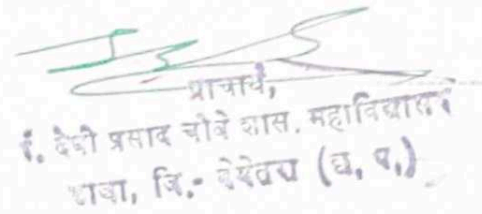 प्राचार्य,
पं. देवी प्रसाद चौबे शास. महाविद्यालय
जि.- बेमेतरा (छ. ग.)